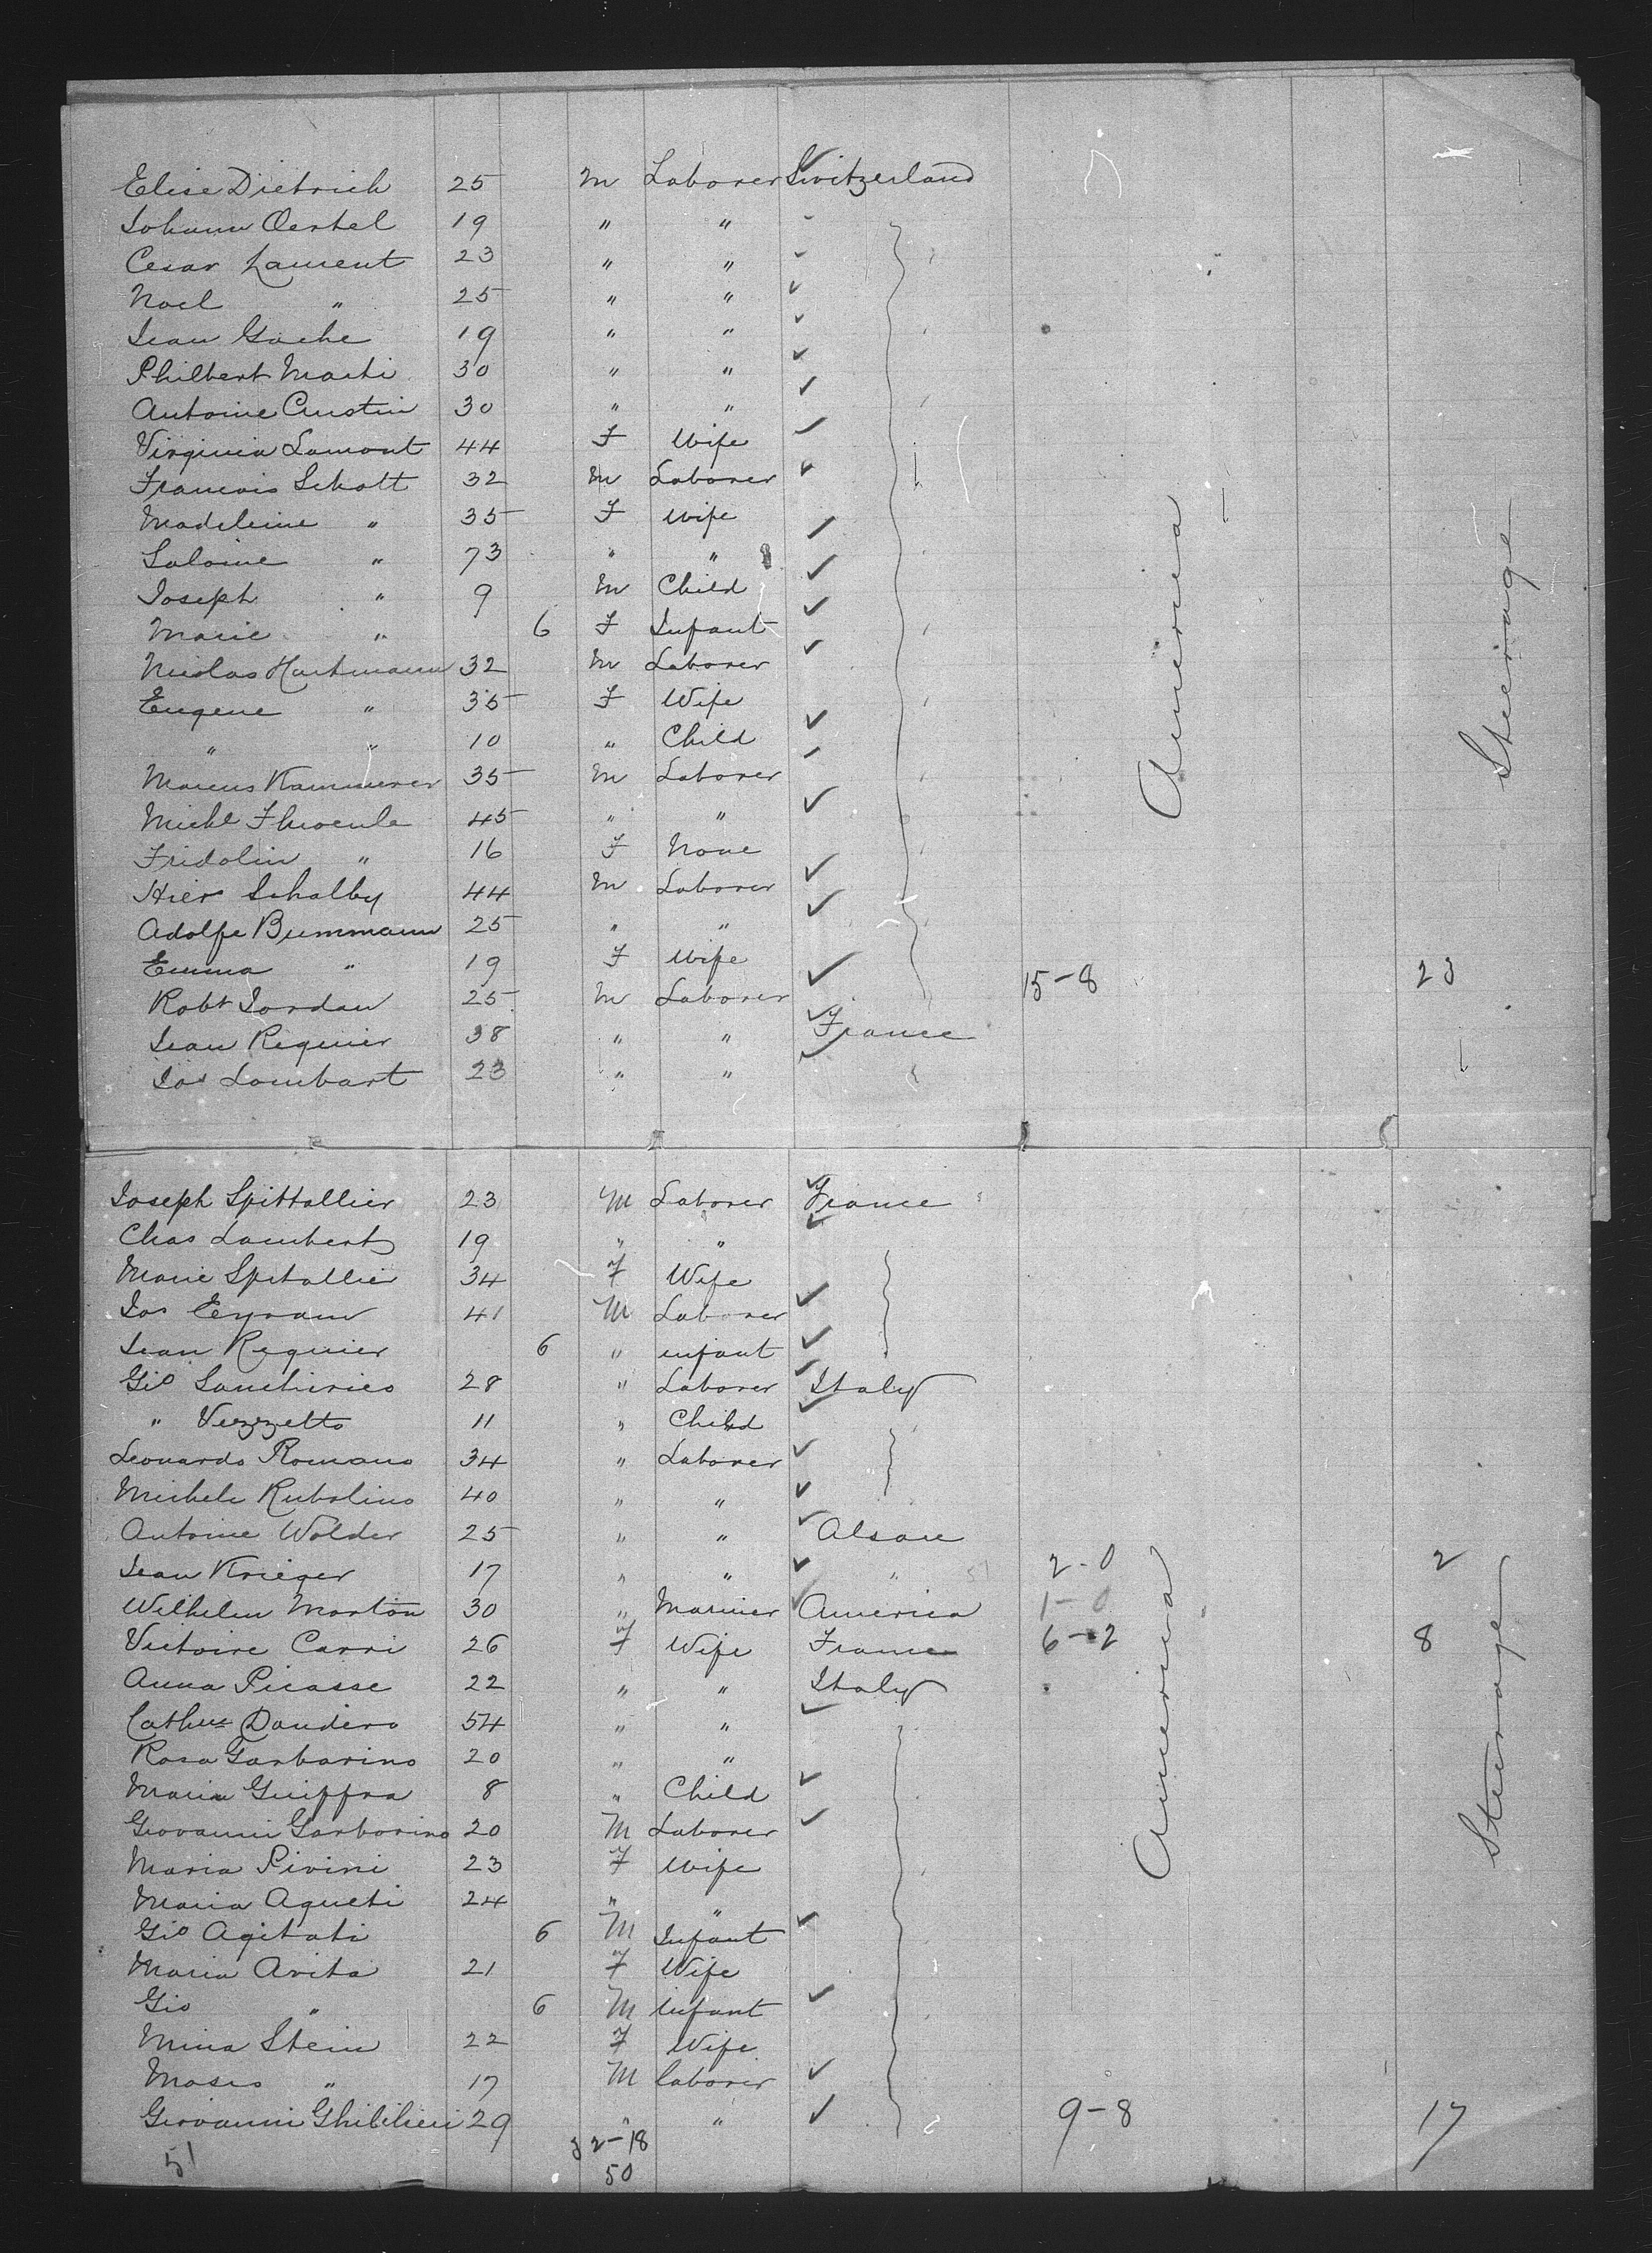 Elise Dietrich 25 M Laborer Switzerland
Johann Oertel 19 " "
Cesar Laurent 23 " "
Noel " 25 " "
Jean Gache 19 " "
Philbert Marti 30 " "
Antoine Custin 30 " "
Virginia Lamont 44 F Wife
Francois Schott 32 M Laborer
Madeleine " 35 F Wife
Saloine " 73 " "
Joseph " 9 M Child
Marie " 6 F Infant
Nicolas Hartmann 32 M Laborer
Eugene " 35 F Wife
" " 10 " Child
Marcus Kammerer 35 M Laborer
Michl 45 " "
Fridolin " 16 F None
Hier Schalby 44 M Laborer
Adolfe Bummann 25 " "
Emma " 19 F Wife
Robt Jordan 25 M Laborer 15-8 23
Jean Requier 38 " " France
Jos Lombart 23 " "
America
Steerage
Joseph Spittallier 23 M Laborer France
Chas Lambert 19 " "
Marie Spitallier 34 F Wife
Jos Eyraun 41 M Laborer
Jean Requier 6 " infant
Gio Sanchirico 28 " Laborer Italy
" Vezzetto 11 " Child
Leonardo Romano 34 " Laborer
Michele Rubolino 40 " "
Antoine Wolder 25 " " Alsace
Jean Krieger 17 " " " 51 2-0 2
Wilhelm Morton 30 " Mariner America 1-0
Victoire Carri 26 F Wife France 6-2 8
Anna Picasse 22 " " Italy
Cathne Dandero 54 " "
Rosa Garbarino 20 " "
Maria Guiffra 8 " Child
Giovanni Garborino 20 M Laborer
Maria Pivini 23 F Wife
Maria Agueti 24 " "
Gio Agitati 6 M Infant
Maria Avita 21 F Wife
Gio " 6 M infant
Mina Stein 22 F Wife
Moses " 17 M laborer
Giovanni Ghiblieri 29 " " 9-8 17
America
Steerage
51 32-18
50